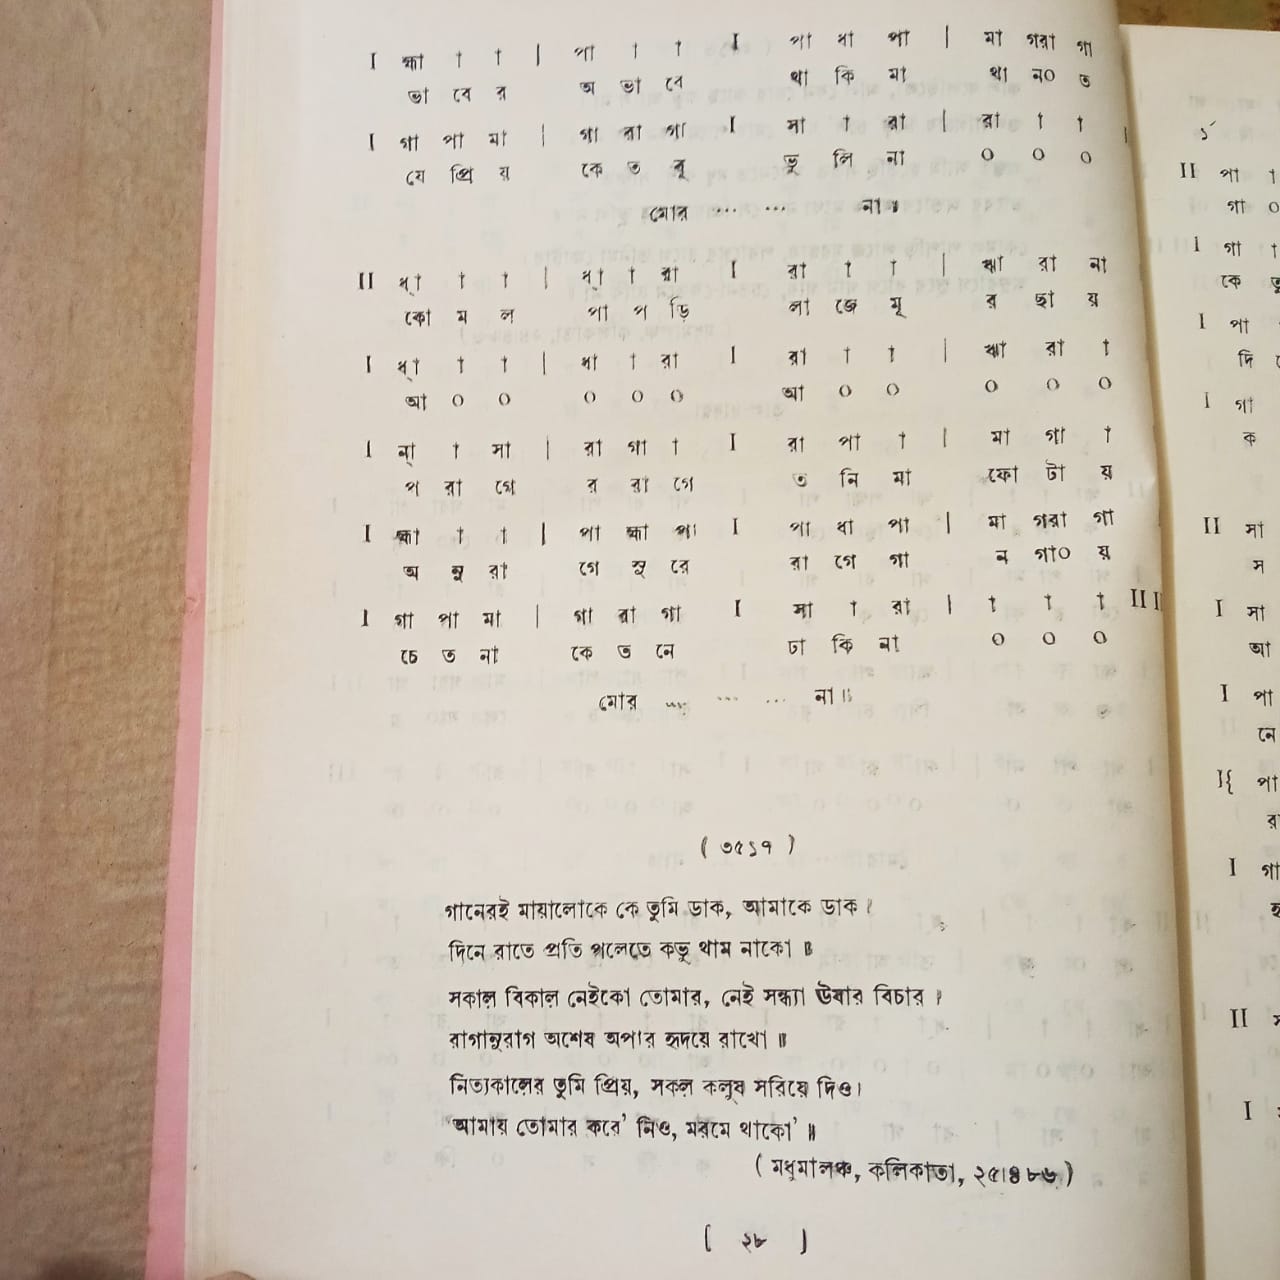 I হ্মা া া | পা া া I পা ধা পা | মা গরা গা
ভা বে র অ ভা বে থা কি মা থা ন০ ত
I গা পা মা | গা রা গা I সা া রা | রা া া
যে প্রি য় কে ত বু ভু লি না ০ ০ ০
মোর ... ... না॥
II ধ্া া া | ধ্া া রা I রা া া | ঋা রা না
কো ম ল পা প ড়ি লা জে মূ র ছা য়
I ধ্া া া | ধা া রা I রা া া | ঋা রা া
আ ০ ০ ০ ০ ০ আ ০ ০ ০ ০ ০
I ন্া া সা | রা গা া I রা পা া | মা গা া
প রা গে র রা গে ত নি মা ফো টা য়
I হ্মা া া | পা হ্মা পা I পা ধা পা | মা গরা গা
অ নু রা গে সু রে রা গে গা ন গা০ য়
I গা পা মা | গা রা গা I সা া রা | া া া II II
চে ত না কে ত নে ঢা কি না ০ ০ ০
মোর ... ... ... না॥
( ৩৫১৭ )
গানেরই মায়ালোকে কে তুমি ডাক, আমাকে ডাক।
দিনে রাতে প্রতি পলেতে কভু থাম নাকো॥
সকাল বিকাল নেইকো তোমার, নেই সন্ধ্যা ঊষার বিচার।
রাগানুরাগ অশেষ অপার হৃদয়ে রাখো॥
নিত্যকালের তুমি প্রিয়, সকল কলুষ সরিয়ে দিও।
'আমায় তোমার করে' নিও, মরমে থাকো'॥
( মধুমালঞ্চ, কলিকাতা, ২৫।৪।৮৬ )
[ ২৮ ]
১´
II পা া
গা ০
I গা া
কে তু
I পা
দি
I গা
ক
II সা
স
I সা
আ
I পা
নে
I{ পা
রা
I গা
II
I